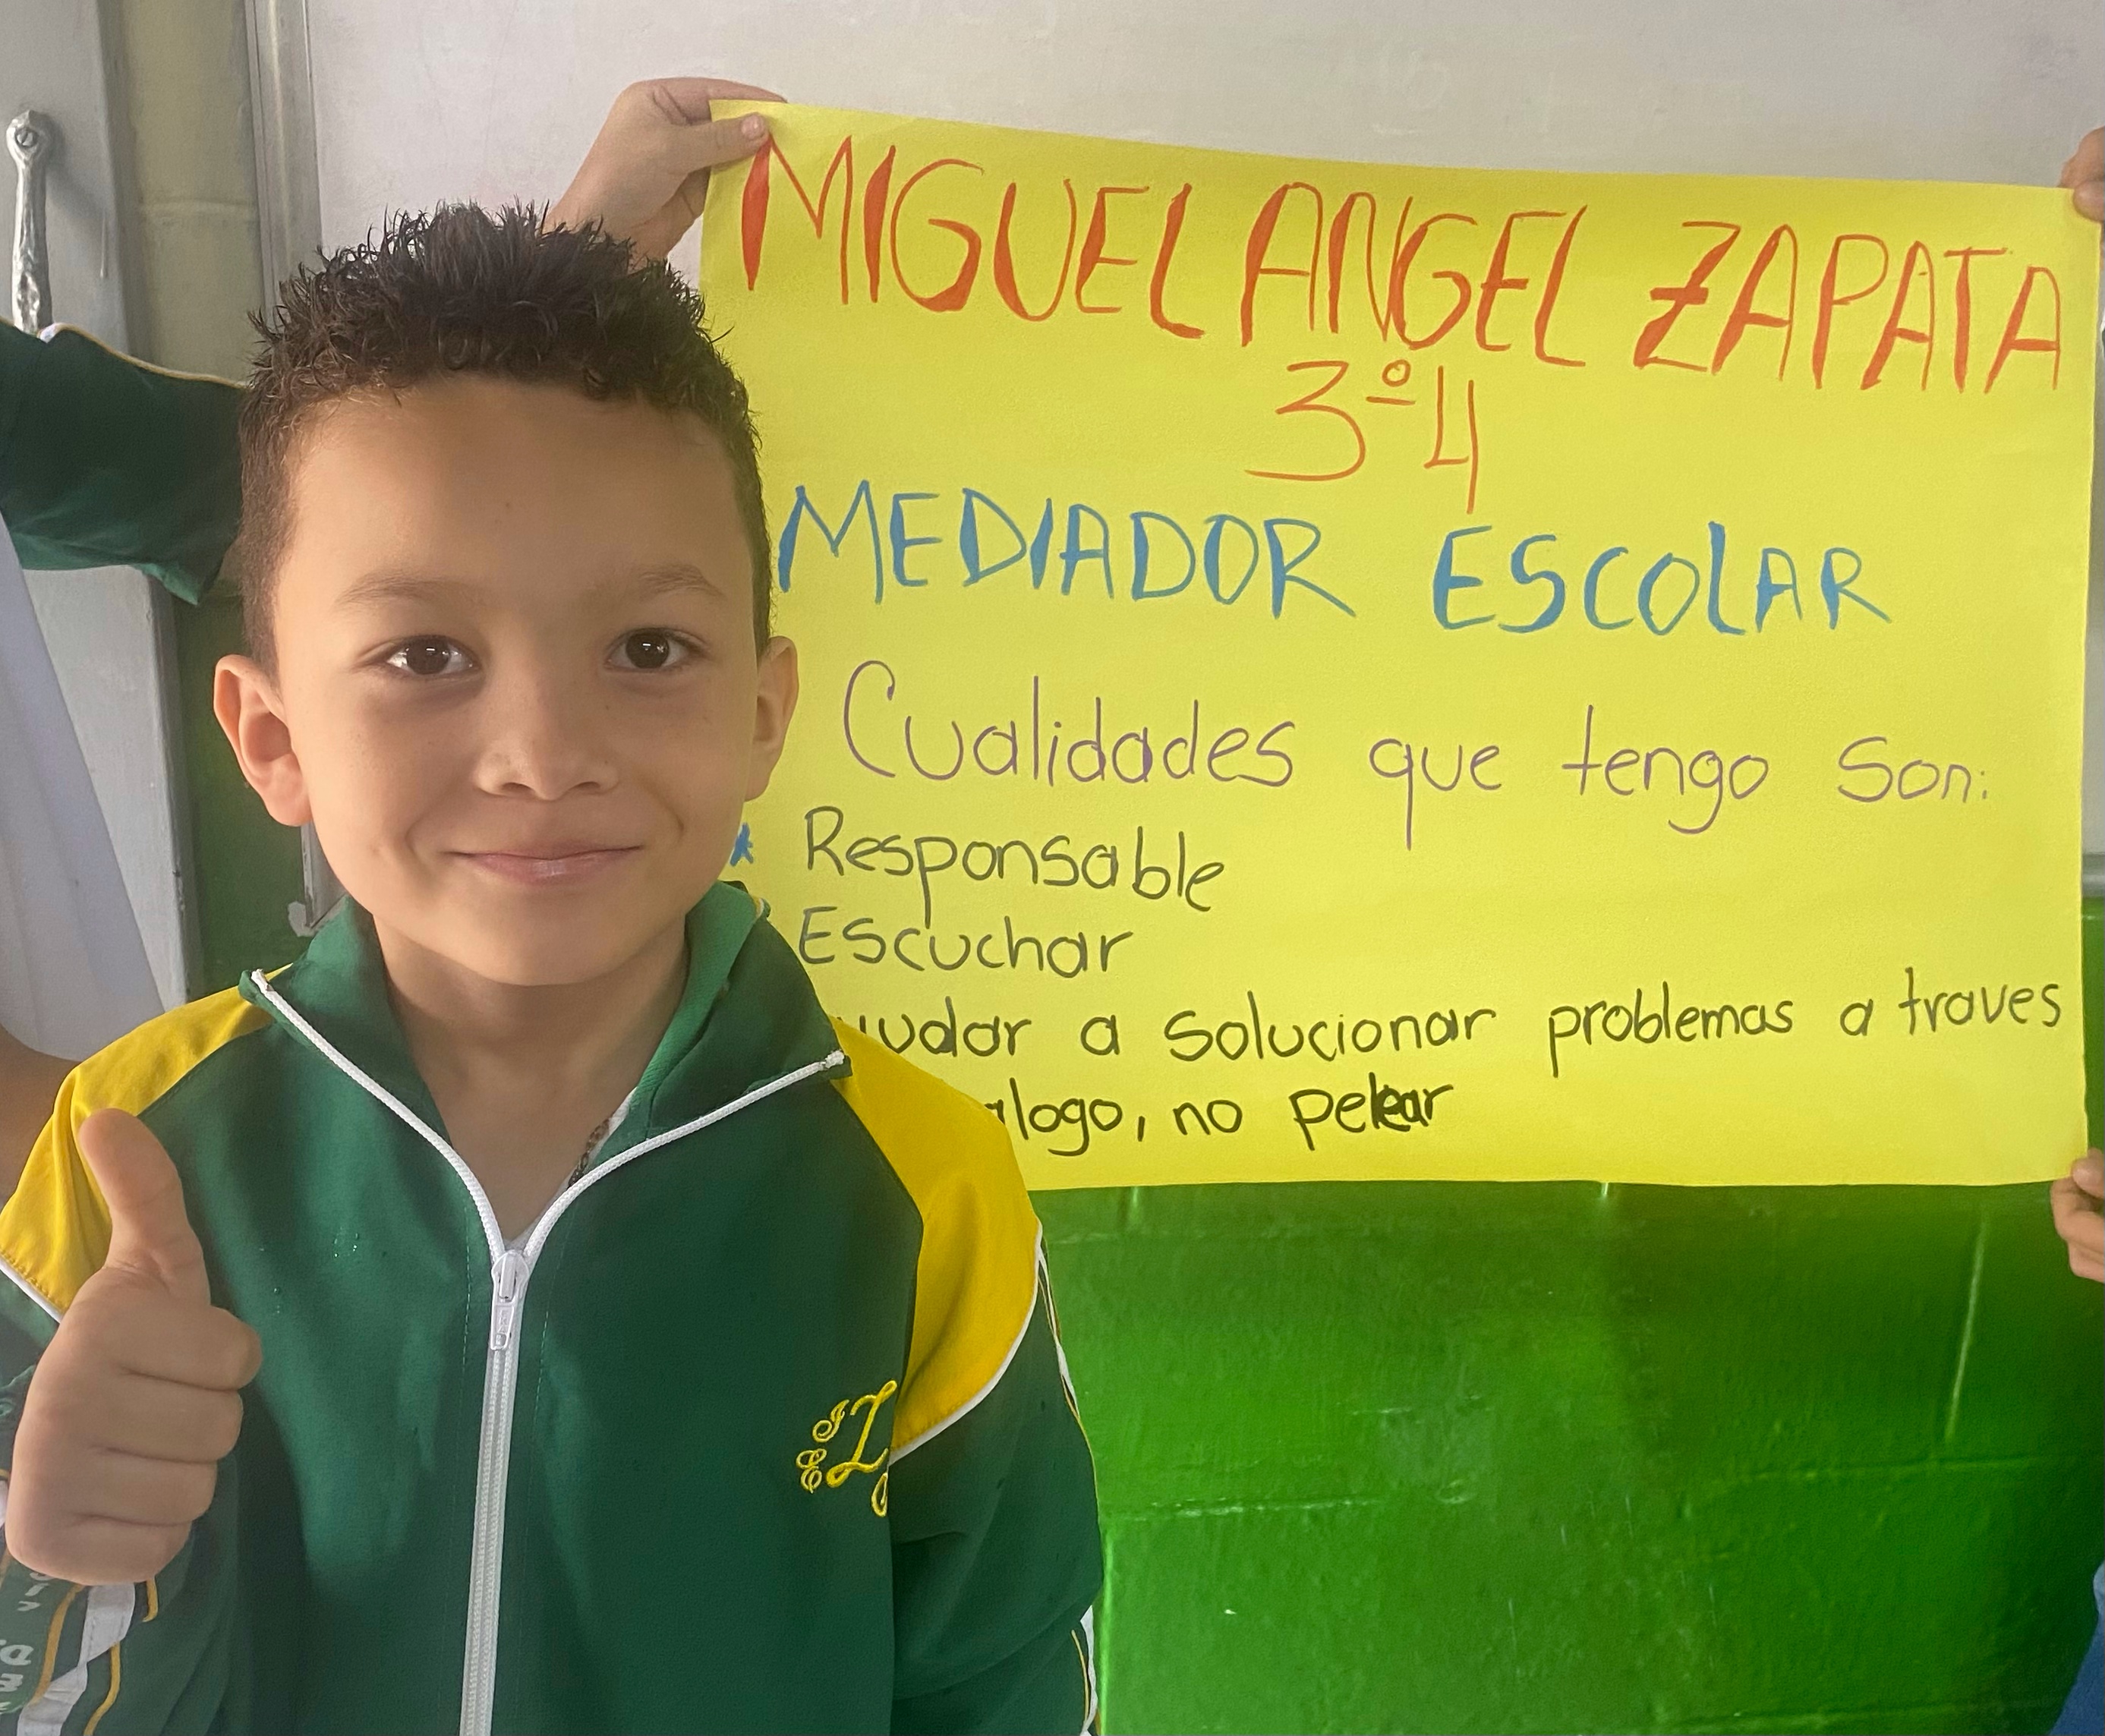 MIGUEL ANGEL ZAPATA
3º4
MEDIADOR ESCOLAR
Cualidades que tengo son:
* Responsable
Escuchar
a solucionar problemas a traves
no pelear